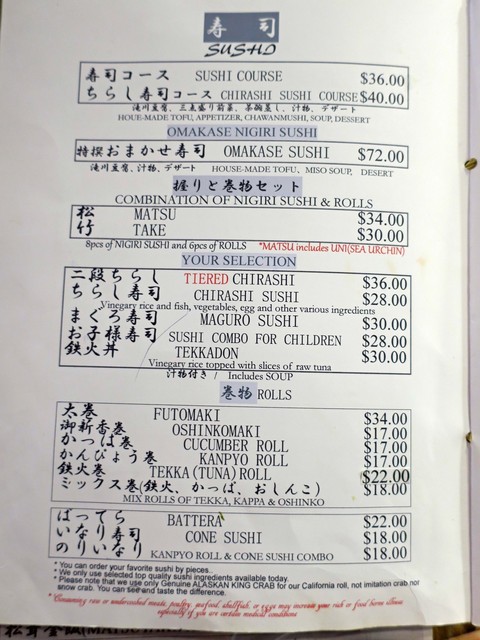 寿 司
SUSHI
寿司コース SUSHI COURSE $36.00
ちらし寿司コース CHIRASHI SUSHI COURSE $40.00
滝川豆腐、三点盛り前菜、茶碗蒸し、汁物、デザート
HOUE-MADE TOFU, APPETIZER, CHAWANMUSHI, SOUP, DESSERT
OMAKASE NIGIRI SUSHI
特撰おまかせ寿司 OMAKASE SUSHI $72.00
滝川豆腐、汁物、デザート HOUSE-MADE TOFU、MISO SOUP, DESERT
握りと巻物セット
COMBINATION OF NIGIRI SUSHI & ROLLS
松 MATSU $34.00
竹 TAKE $30.00
8pcs of NIGIRI SUSHI and 6pcs of ROLLS *MATSU includes UNI(SEA URCHIN)
YOUR SELECTION
二段ちらし TIERED CHIRASHI $36.00
ちらし寿司 CHIRASHI SUSHI $28.00
Vinegary rice and fish, vegetables, egg and other various ingredients
まぐろ寿司 MAGURO SUSHI $30.00
お子様寿司 SUSHI COMBO FOR CHILDREN $28.00
鉄火丼 TEKKADON $30.00
Vinegary rice topped with slices of raw tuna
汁物付き / Includes SOUP
巻物 ROLLS
太巻 FUTOMAKI $34.00
御新香巻 OSHINKOMAKI $17.00
かっぱ巻 CUCUMBER ROLL $17.00
かんぴょう巻 KANPYO ROLL $17.00
鉄火巻 TEKKA (TUNA) ROLL $22.00
ミックス巻(鉄火、かっぱ、おしんこ) $18.00
MIX ROLLS OF TEKKA, KAPPA & OSHINKO
ばってら BATTERA $22.00
いなり寿司 CONE SUSHI $18.00
のりいなり KANPYO ROLL & CONE SUSHI COMBO $18.00
* You can order your favorite sushi by pieces..
* We only use selected top quality sushi ingredients available today.
* Please note that we use only Genuine ALASKAN KING CRAB for our California roll, not imitation crab nor
snow crab. You can see and taste the difference.
* Consuming raw or undercooked meats, poultry, seafood, shellfish, or eggs may increase your risk or food borne illness
especially if you are certain medical conditions